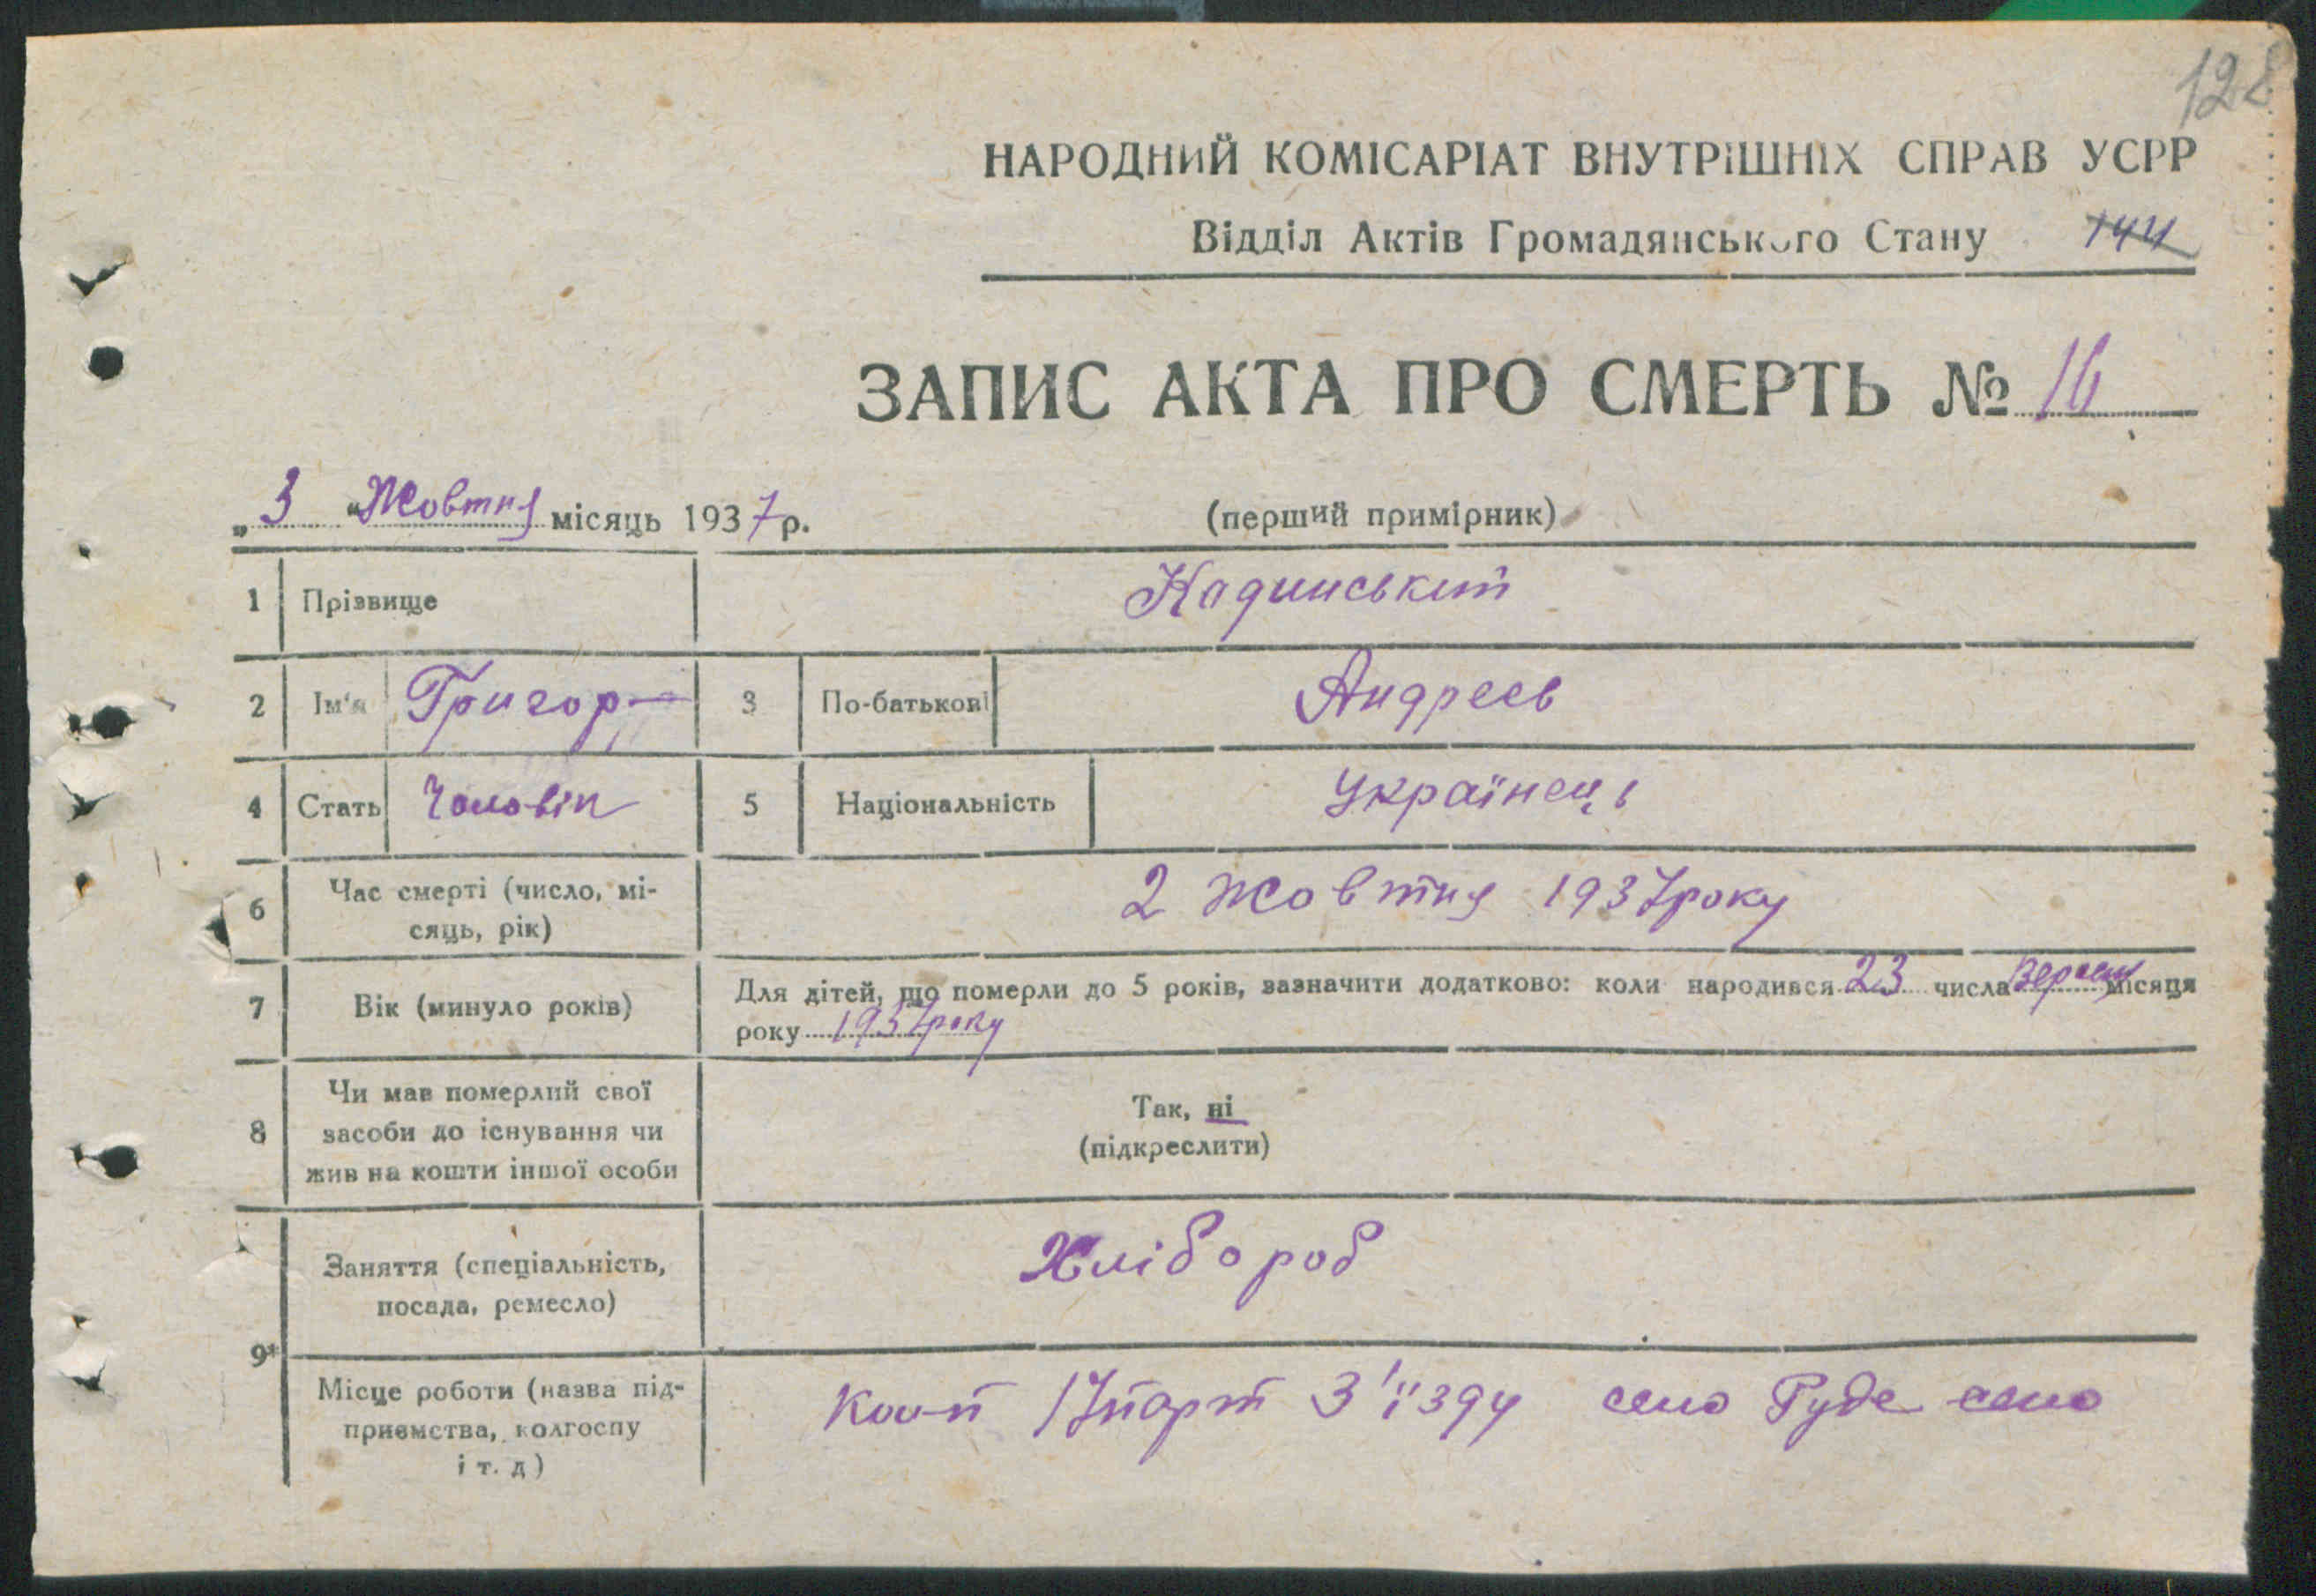 128
НАРОДНИЙ КОМІСАРІАТ ВНУТРІШНІХ СПРАВ УСРР
Відділ Актів Громадянського Стану 144
ЗАПИС АКТА ПРО СМЕРТЬ № 16
„3" Жовтня місяць 1937 р. (перший примірник)
1 Прізвище Кадинський
2 Ім'я Григор 3 По-батькові Андреєв
4 Стать Чоловік 5 Національність Українець
6 Час смерті (число, мі-
сяць, рік) 2 Жовтня 1937 року
7 Вік (минуло років) Для дітей, що померли до 5 років, зазначити додатково: коли народився 23 числа Вересня місяця
року 1937 року
8 Чи мав померлий свої
засоби до існування чи
жив на кошти іншої особи
Так, ні
(підкреслити)
9* Заняття (спеціальність,
посада, ремесло) Хлібороб
Місце роботи (назва під-
приємства, колгоспу
і т. д) 17 парт З'їзду село Руде село